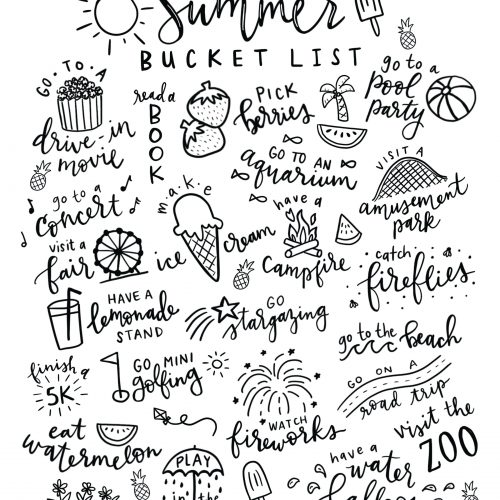 Summer
BUCKET LIST
GO TO A
drive-in
movie
read a
BOOK
PICK
berries
go to a
pool
party
GO TO AN
aquarium
VISIT A
amusement
park
go to a
concert
make
ice cream
have a
campfire
catch
fireflies
visit a
fair
HAVE A
lemonade
STAND
GO
stargazing
go to the beach
finish a
5K
GO MINI
golfing
WATCH
fireworks
GO ON A
road trip
eat
watermelon
PLAY
in the
have a
water
visit the
ZOO